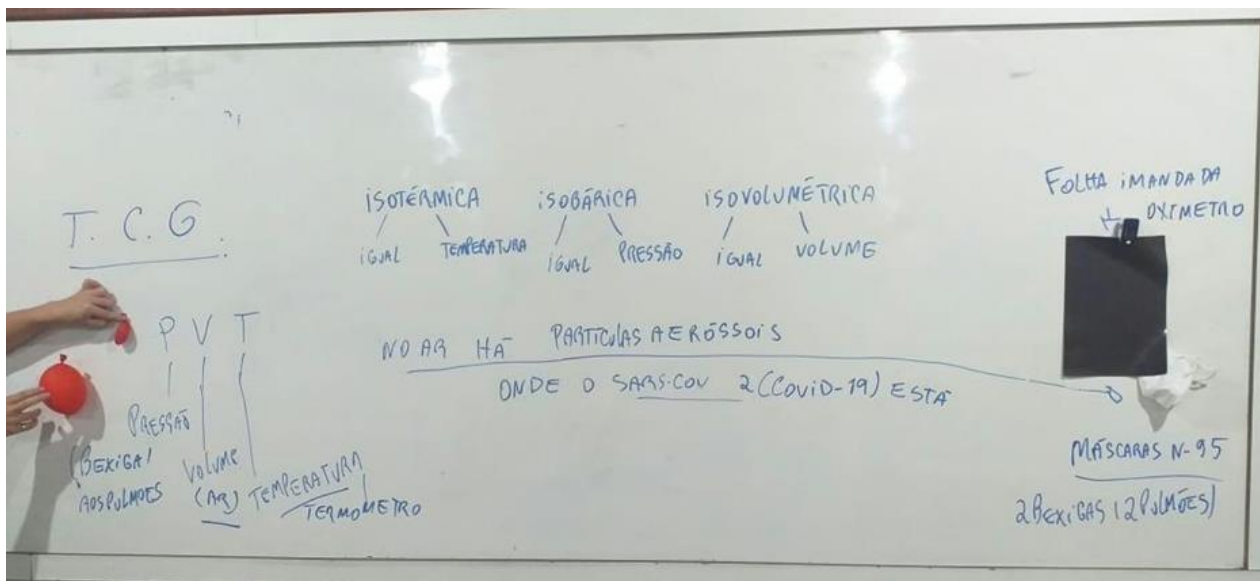 T. C. G.
P V T
PRESSÃO
(BEXIGA/
AOS PULMÕES
VOLUME
(AR)
TEMPERATURA
TERMOMETRO
ISOTÉRMICA
IGUAL TEMPERATURA
ISOBÁRICA
IGUAL PRESSÃO
ISOVOLUMÉTRICA
IGUAL VOLUME
NO AR HÁ PARTÍCULAS AERÓSSOIS
ONDE O SARS-COV 2 (COVID-19) ESTÁ
FOLHA IMANDADA
OXÍMETRO
MÁSCARAS N-95
2 BEXIGAS (2 PULMÕES)